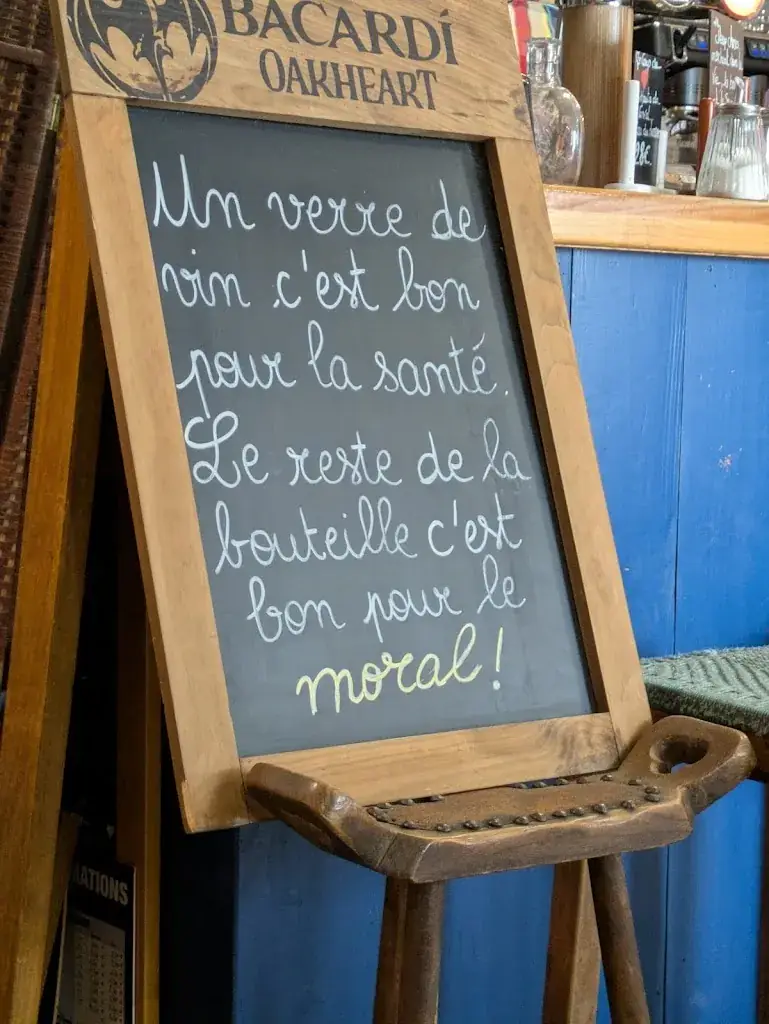 BACARDÍ
OAKHEART
Un verre de
vin c'est bon
pour la santé.
Le reste de la
bouteille c'est
bon pour le
moral !